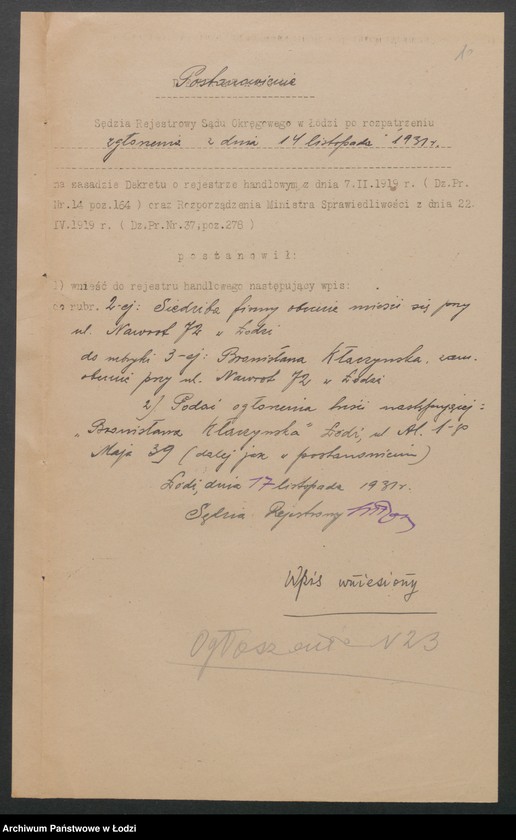 10
Postanowienie
Sędzia Rejestrowy Sądu Okręgowego w Łodzi po rozpatrzeniu
zgłoszenia z dnia 14 listopada 1931 r.
na zasadzie Dekretu o rejestrze handlowym z dnia 7.II.1919 r. ( Dz.Pr.
Nr.14 poz.164 ) oraz Rozporządzenia Ministra Sprawiedliwości z dnia 22.
IV.1919 r. ( Dz.Pr.Nr.37,poz.278 )
postanowił:
1) wnieść do rejestru handlowego następujący wpis:
do rubr. 2-ej: Siedziba firmy obecnie mieści się przy
ul. Nawrot 72 w Łodzi
do rubryki 3-ej: Bronisława Kłaczyńska, zam.
obecnie przy ul. Nawrot 72 w Łodzi
2) Podać ogłoszenia treści następującej:
„Bronisława Kłaczyńska" Łódź, ul. Al. 1-go
Maja 39 (dalej jak w postanowieniu)
Łódź, dnia 17 listopada 1931 r.
Sędzia Rejestrowy
Wpis wniesiony
Ogłoszenie N 23
Archiwum Państwowe w Łodzi